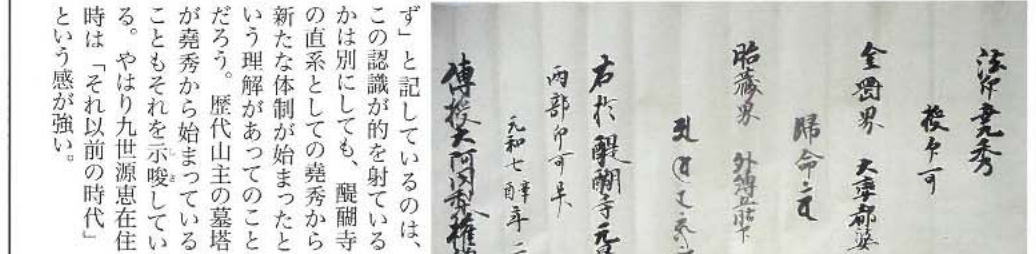 法印堯秀
授印可
金剛界 大率都婆
帰命
胎蔵界 外縛五
右於醍醐寺
両部印可畢
元和七辛酉年二
傳授大阿闍梨権
ず」と記しているのは、
この認識が的を射ている
かは別にしても、醍醐寺
の直系としての堯秀から
新たな体制が始まったと
いう理解があってのこと
だろう。歴代山主の墓塔
が堯秀から始まっている
こともそれを示唆(しさ)してい
る。やはり九世源恵在住
時は「それ以前の時代」
という感が強い。